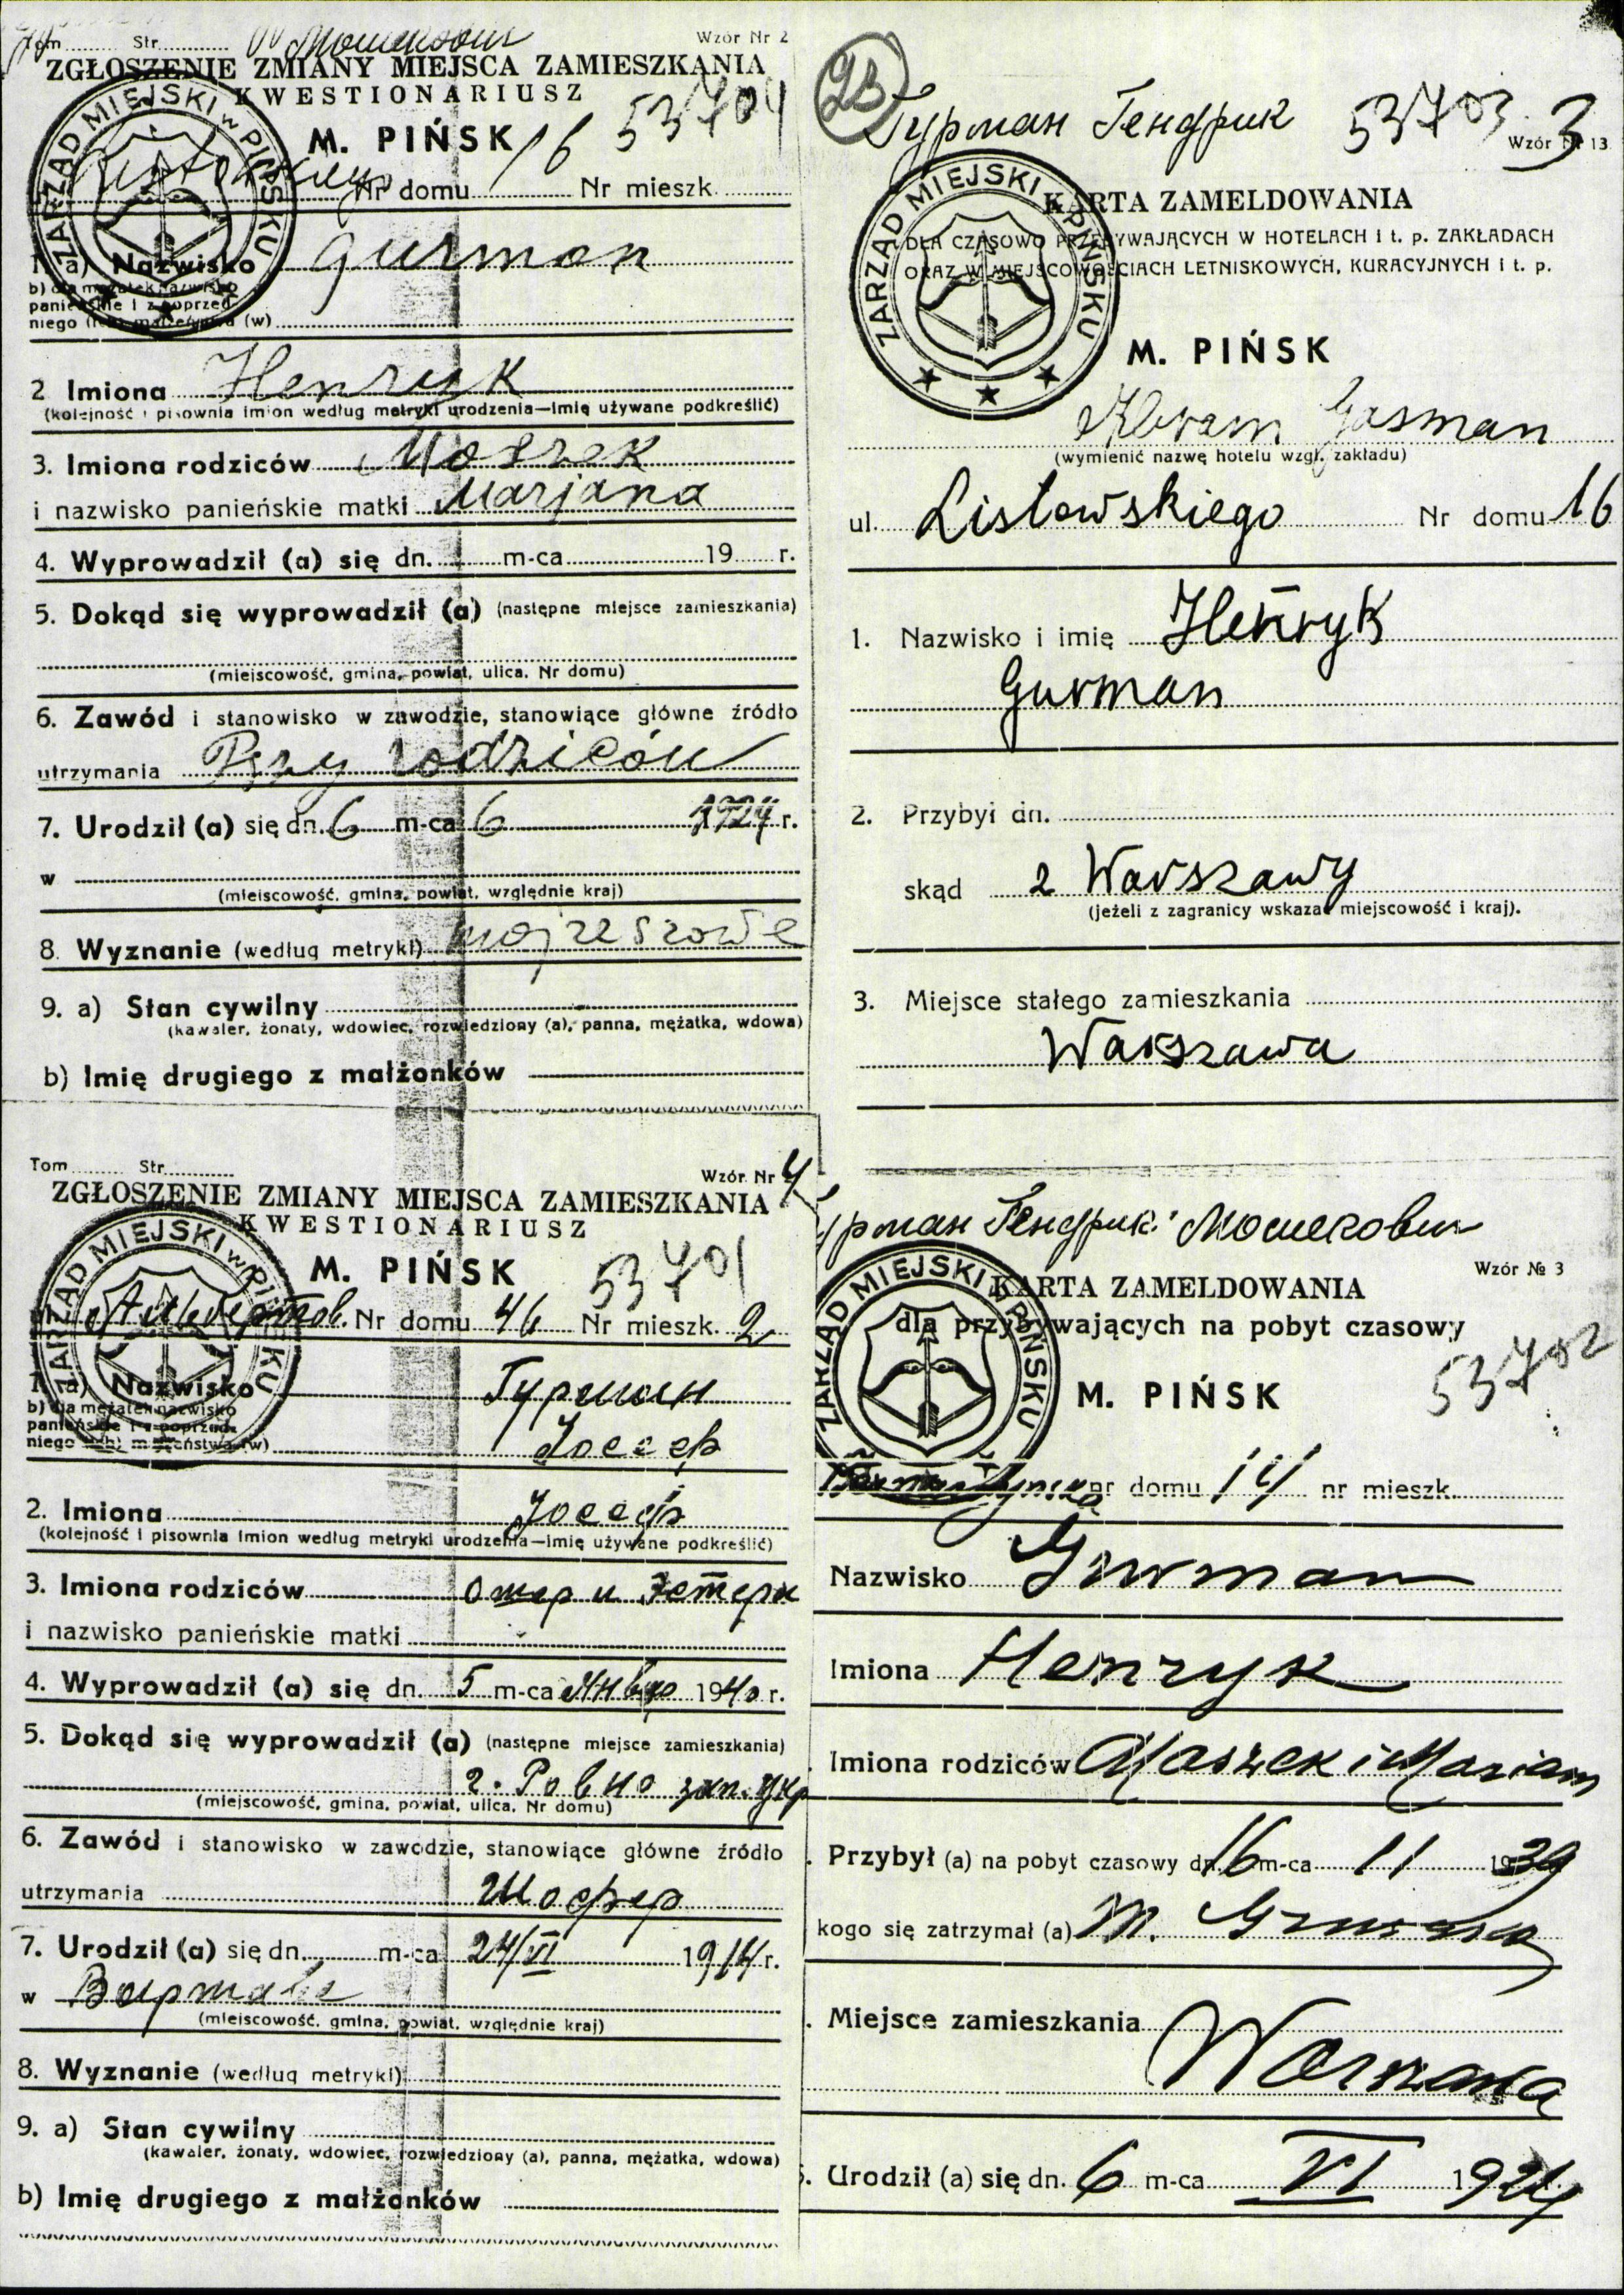 Tom Str. Wzór Nr 2
Мошекович
ZGŁOSZENIE ZMIANY MIEJSCA ZAMIESZKANIA
KWESTIONARIUSZ
ZARZĄD MIEJSKI w PIŃSKU
M. PIŃSK 53704
Nr domu 16 Nr mieszk.
1. a) Nazwisko Gurman
b) dla mężatek nazwisko
panieńskie i z poprzed-
niego (ich) małżeństwa (w)
2 Imiona Henryk
(kolejność i pisownia imion według metryki urodzenia—imię używane podkreślić)
3. Imiona rodziców Moszek
i nazwisko panieńskie matki Marjana
4. Wyprowadził (a) się dn. m-ca 19 r.
5. Dokąd się wyprowadził (a) (następne miejsce zamieszkania)
(miejscowość, gmina, powiat, ulica, Nr domu)
6. Zawód i stanowisko w zawodzie, stanowiące główne źródło
utrzymania Przy rodziców
7. Urodził (a) się dn. 6 m-ca 6 1924 r.
w
(miejscowość, gmina, powiat, względnie kraj)
8. Wyznanie (według metryki) mojżeszowe
9. a) Stan cywilny
(kawaler, żonaty, wdowiec, rozwiedziony (a), panna, mężatka, wdowa)
b) Imię drugiego z małżonków
23
Гурман Гендрик 53703 3
Wzór Nr 13
KARTA ZAMELDOWANIA
DLA CZASOWO PRZEBYWAJĄCYCH W HOTELACH I t. p. ZAKŁADACH
ORAZ W MIEJSCOWOŚCIACH LETNISKOWYCH, KURACYJNYCH I t. p.
ZARZĄD MIEJSKI w PIŃSKU
M. PIŃSK
Abram Gasman
(wymienić nazwę hotelu wzgl. zakładu)
ul. Listowskiego Nr domu 16
1. Nazwisko i imię Henryk
Gurman
2. Przybył dn.
skąd z Warszawy
(jeżeli z zagranicy wskazać miejscowość i kraj).
3. Miejsce stałego zamieszkania
Warszawa
Tom Str. Wzór Nr 4
ZGŁOSZENIE ZMIANY MIEJSCA ZAMIESZKANIA
KWESTIONARIUSZ
ZARZĄD MIEJSKI w PIŃSKU
M. PIŃSK 53701
Nr domu 46 Nr mieszk. 2
1. a) Nazwisko Гурман
b) dla mężatek nazwisko
panieńskie i z poprzed-
niego (ich) małżeństwa (w) Иосеф
2. Imiona Иосеф
(kolejność i pisownia imion według metryki urodzenia—imię używane podkreślić)
3. Imiona rodziców
i nazwisko panieńskie matki
4. Wyprowadził (a) się dn. 5 m-ca Январ 1940 r.
5. Dokąd się wyprowadził (a) (następne miejsce zamieszkania)
г. Ровно зап. Укр
(miejscowość, gmina, powiat, ulica, Nr domu)
6. Zawód i stanowisko w zawodzie, stanowiące główne źródło
utrzymania Шофер
7. Urodził (a) się dn. m-ca 24/VI 1914 r.
w Варшаве
(miejscowość, gmina, powiat, względnie kraj)
8. Wyznanie (według metryki)
9. a) Stan cywilny
(kawaler, żonaty, wdowiec, rozwiedziony (a), panna, mężatka, wdowa)
b) Imię drugiego z małżonków
Гурман Гендрик Мошекович
Wzór № 3
KARTA ZAMELDOWANIA
dla przybywających na pobyt czasowy
ZARZĄD MIEJSKI w PIŃSKU
53702
M. PIŃSK
nr domu 14 nr mieszk.
Nazwisko Gurman
Imiona Henryk
Imiona rodziców Moszek i Mariam
Przybył (a) na pobyt czasowy dn. 16 m-ca 11 1939
kogo się zatrzymał (a) M.
Miejsce zamieszkania
Warszawa
Urodził (a) się dn. 6 m-ca VI 1924